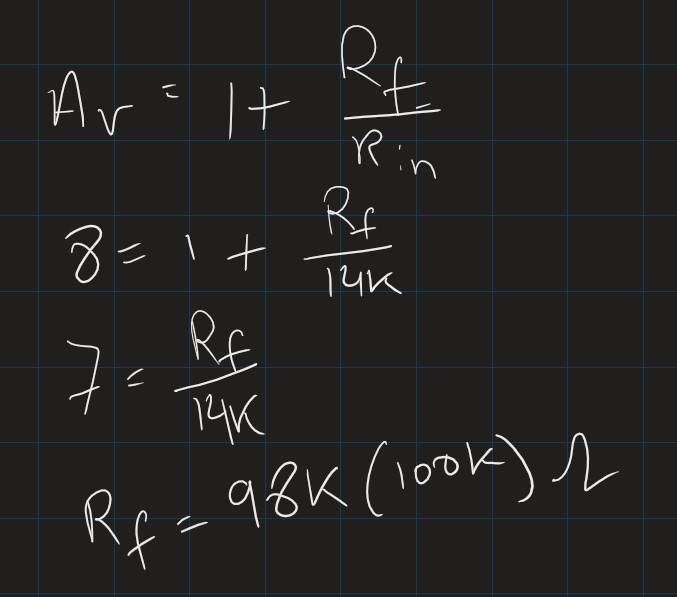 Av = 1 + Rf/Rin
8 = 1 + Rf/14K
7 = Rf/14K
Rf = 98K (100K) Ω